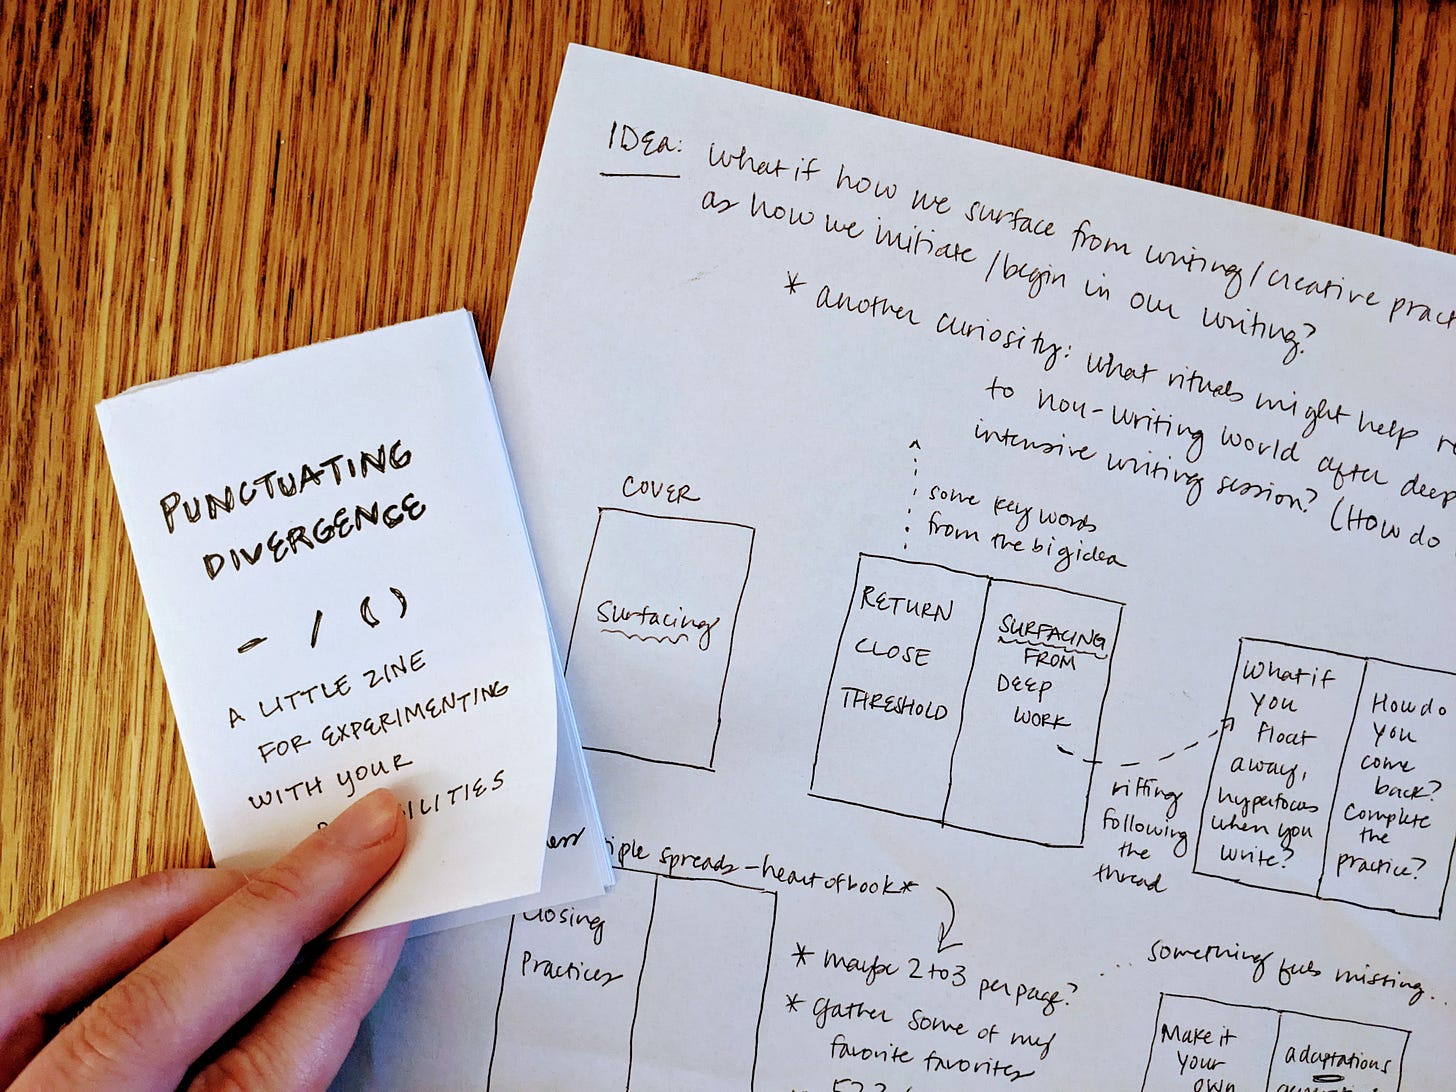 PUNCTUATING
DIVERGENCE
- / ( )
A LITTLE ZINE
FOR EXPERIMENTING
WITH YOUR
IDEA: What if how we surface from writing/creative
as how we initiate/begin in our writing?
* another curiosity: what rituals might help
to non-writing world after deep
intensive writing session? (How do
some key words
from the big idea
COVER
Surfacing
RETURN
CLOSE
THRESHOLD
SURFACING
FROM
DEEP
WORK
riffing
following
the
thread
What if
you
float
away,
hyperfocus
when you
write?
How do
you
come
back?
Complete
the
practice?
spreads - heart of book *
Closing
Practices
* maybe 2 to 3 per page?
* gather some of my
favorite favorites
something feels missing...
Make it
your
own
adaptations